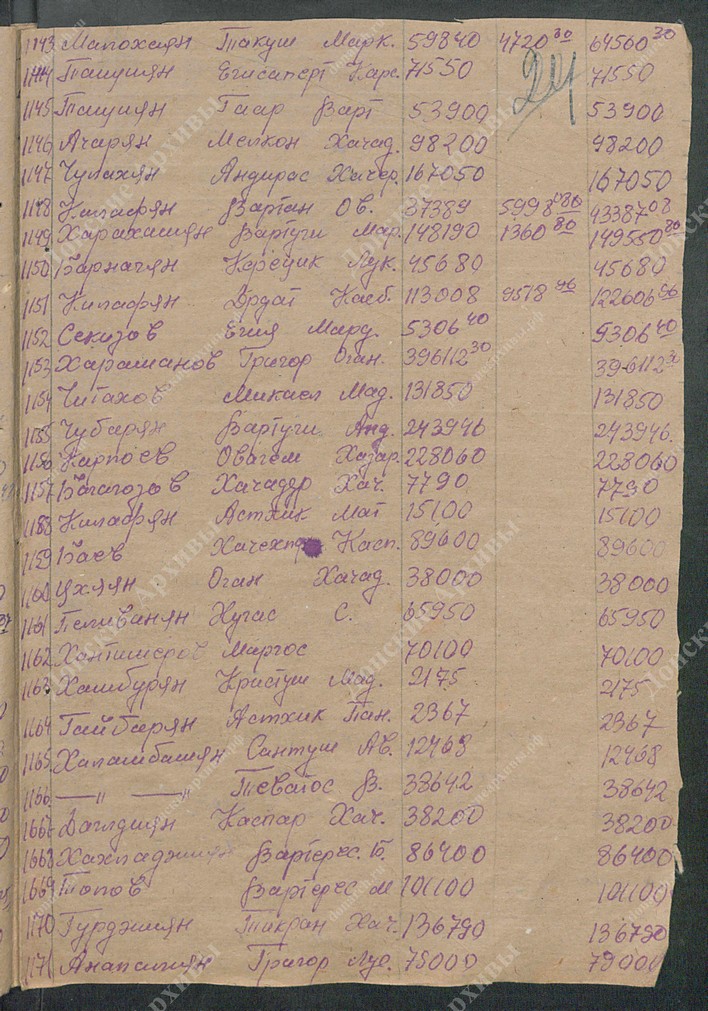 1143 Малохаян Такуш Марк. 59840 4720 30 64560 30
1144 Ташчиян Егисаперт Карс. 71550 71550
24
1145 Ташчиян Гаар Варт 53900 53900
1146 Ачарян Мелкон Хачад. 98200 98200
1147 Чулахян Андирас Хачер. 167050 167050
1148 Килафян Вартан Ов. 37389 5998 43387 08
1149 Харахашян Вартуги Мар. 148190 1360 80 149550 80
1150 Барнагян Керецик Лук. 45680 45680
1151 Килафян Дрдат Касб. 113008 9518 96 122606 96
1152 Секизов Егия Мард. 5306 40 9306 40
1153 Харашанов Григор Оган. 396112 30 396112 30
1154 Читахов Микаел Мад. 131850 131850
1155 Чубарян Вартуги Анд. 243946 243946.
1156 Карпоев Овагем Хазар. 228060 228060
1157 Багагозов Хачадур Хач. 7790 7790
1158 Килафян Астхик Мат 15100 15100
1159 Баев Касп. 89600 89600
1160 Цхяян Оган Хачад. 38000 38000
1161 Пеливанян Хугас С. 65950 65950
1162 Хантимеров Маргос 70100 70100
1163 Хамбурян Кристуш Мад. 2175 2175
1164 Гайбарян Астхик Пан. 2367 2367
1165 Хапашбашян Сантуш Ав. 12468 12468
1166 —〃 —〃 Теватос В. 38642 38642
1667 Даглдиян Каспар Хач. 38200 38200
1668 Хахладжиян Вартерес. Т. 86400 86400
1669 Попов Вартерес М 101100 101100
1170 Гурджиян Тикран Хач. 136790 136790
1171 Анапсиян Григор Лус. 79000 79000
Донские Архивы